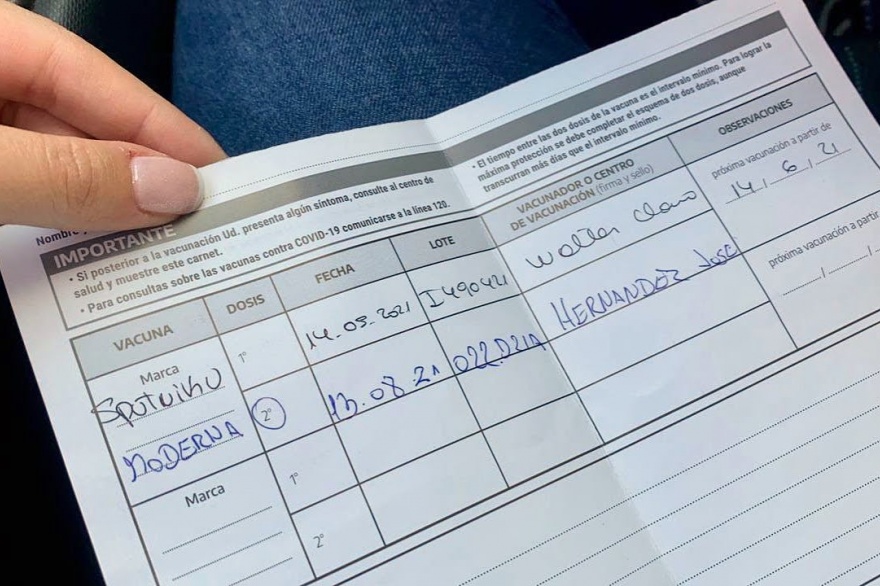 Nombre
IMPORTANTE
• Si posterior a la vacunación Ud. presenta algún síntoma, consulte al centro de
salud y muestre este carnet.
• Para consultas sobre las vacunas contra COVID-19 comunicarse a la línea 120.
• El tiempo entre las dos dosis de la vacuna es el intervalo mínimo. Para lograr la
máxima protección se debe completar el esquema de dos dosis, aunque
transcurran más días que el intervalo mínimo.
VACUNA DOSIS FECHA LOTE VACUNADOR O CENTRO
DE VACUNACIÓN (firma y sello) OBSERVACIONES
Marca
Sputnik V 1° 14.05.2021 I490421 Walter Claro próxima vacunación a partir de
14, 6, 21
MODERNA 2° 13.08.21 022D21A HERNANDEZ JOSE próxima vacunación a partir
Marca 1°
2°